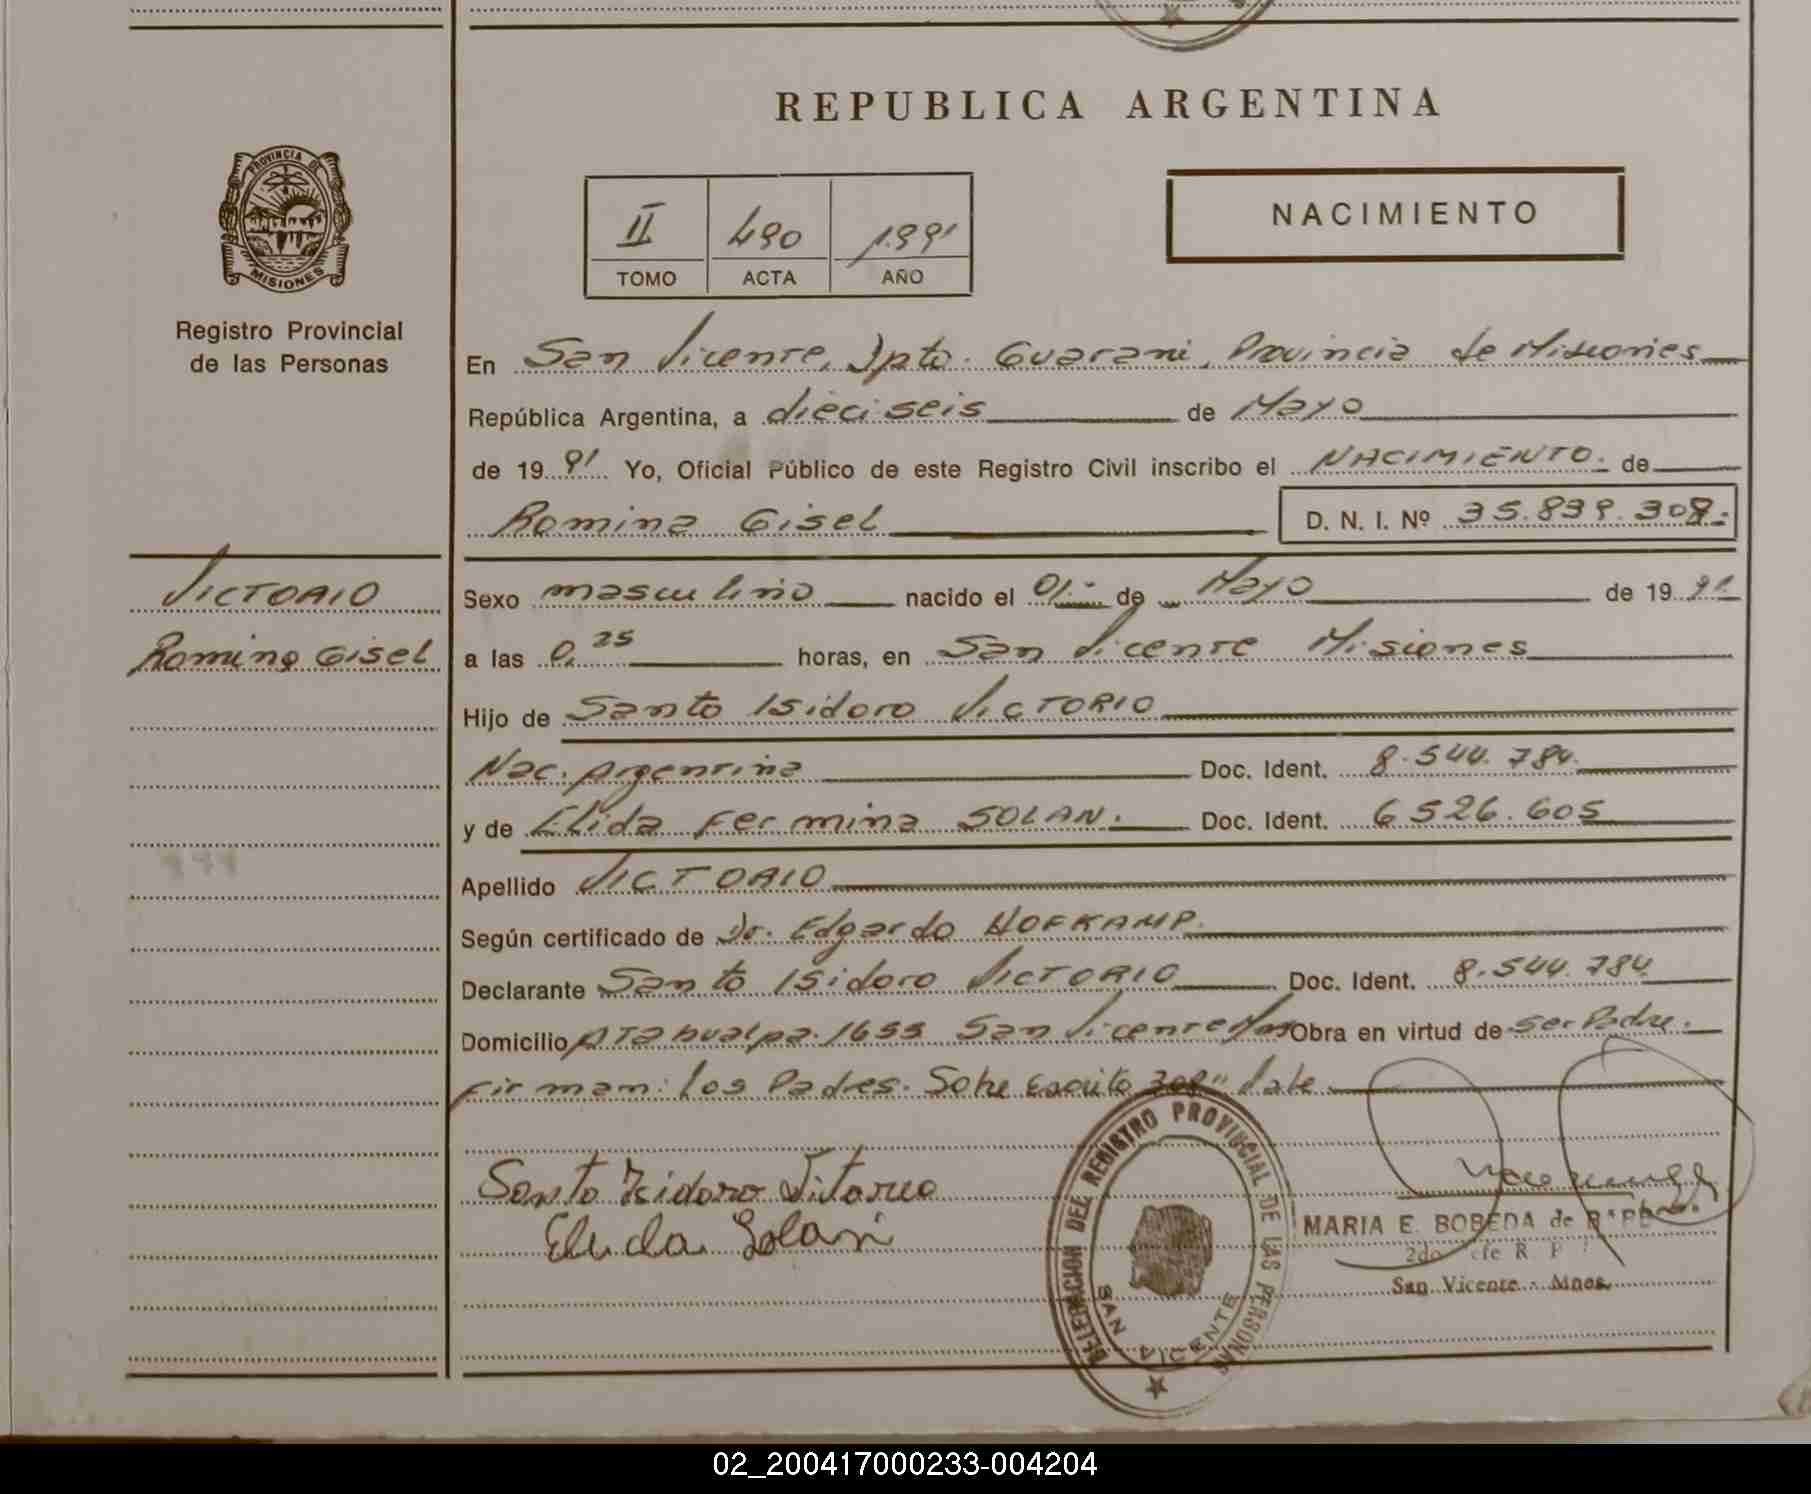 REPUBLICA ARGENTINA
PROVINCIA DE
MISIONES
Registro Provincial
de las Personas
II 490 1991
TOMO ACTA AÑO
NACIMIENTO
En San Vicente, Dpto. Guarani, Provincia de Misiones
República Argentina, a dieciseis de Mayo
de 19 91 Yo, Oficial Público de este Registro Civil inscribo el NACIMIENTO. de
Romina Gisel
D. N. I. Nº 35.839.308.-
VICTORIO
Romina Gisel
Sexo masculino nacido el 01.- de Mayo de 19 91
a las 0,25 horas, en San Vicente Misiones
Hijo de Santo Isidoro VICTORIO
Nac. Argentina Doc. Ident. 8.544.784.
y de Elida Fermina SOLAN. Doc. Ident. 6526.605
Apellido VICTORIO
Según certificado de Dr. Edgardo HOFKAMP.
Declarante Santo Isidoro VICTORIO Doc. Ident. 8.544.784
Domicilio ATahualpa. 1655 San Vicente Mnes Obra en virtud de ser Padre.
Firman: los Padres. Sobre Escrito 308" Vale.
Santo Isidoro Vitorio
Elida Solan
DELEGACION DEL REGISTRO PROVINCIAL DE LAS PERSONAS
SAN VICENTE
MARIA E. BOBEDA de
2do Jefe R P
San Vicente - Mnes.
02_200417000233-004204